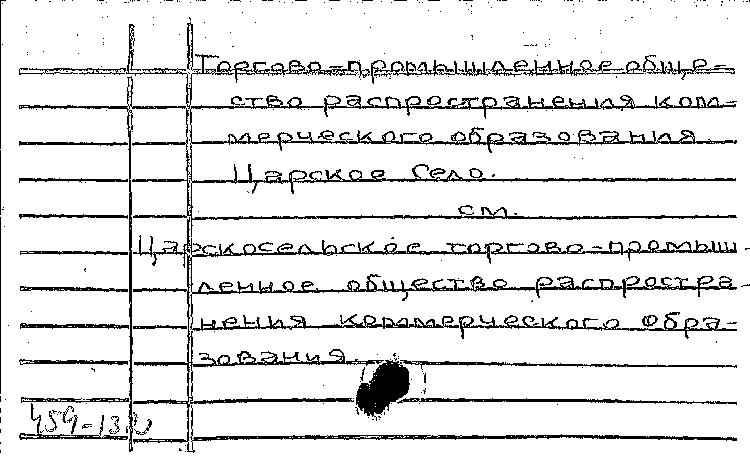 Торгово-промышленное обще-
ство распространения ком-
мерческого образования.
Царское Село.
см.
Царскосельское торгово-промыш-
ленное общество распростра-
нения коммерческого обра-
зования.